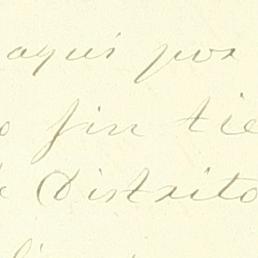 aquí por
fin tie
Distrito